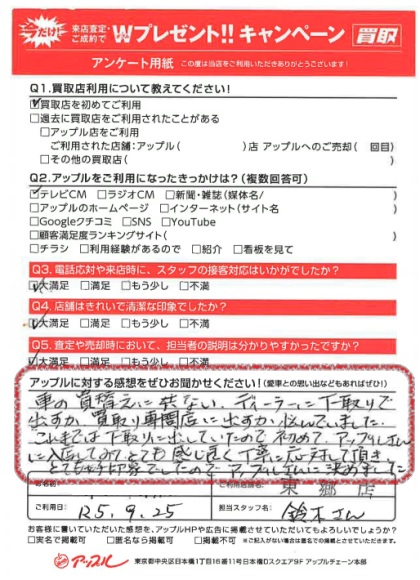 今だけ 来店査定・ご成約で Wプレゼント!! キャンペーン 買取
アンケート用紙 この度は当店をご利用いただきありがとうございます!
Q1.買取店利用について教えてください!
☑買取店を初めてご利用
□過去に買取店をご利用されたことがある
□アップル店をご利用
ご利用された店舗:アップル( )店 アップルへのご売却( 回目)
□その他の買取店( )
Q2.アップルをご利用になったきっかけは?(複数回答可)
☑テレビCM □ラジオCM □新聞・雑誌(媒体名/ )
□アップルのホームページ □インターネット(サイト名 )
□Googleクチコミ □SNS □YouTube
□顧客満足度ランキングサイト( )
□チラシ □利用経験があるので □紹介 □看板を見て
Q3.電話応対や来店時に、スタッフの接客対応はいかがでしたか?
☑大満足 □満足 □もう少し □不満
Q4.店舗はきれいで清潔な印象でしたか?
☑大満足 □満足 □もう少し □不満
Q5.査定や売却時において、担当者の説明は分かりやすかったですか?
☑大満足 □満足 □もう少し □不満
アップルに対する感想をぜひお聞かせください!(愛車との思い出などもあればぜひ!)
車の買替えに伴ない、ディーラーに下取りで
出すか、買取り専門店に出すか悩んでいました。
これまでは下取りに出していたので初めて、アップルさん
に入店してみてとても感じ良く丁寧に応対して頂き、
とても好印象でしたので、アップルさんに決めました
東郷店
ご利用日: R5.9.25 担当スタッフ名: 鈴木さん
お客様に書いていただいた感想を、アップルHPや広告に掲載させていただいてもよろしいでしょうか?
□実名で掲載可 □匿名なら掲載可 □掲載不可 ※ご記入がない場合は匿名での掲載可とさせていただきます。
アップル 東京都中央区日本橋1丁目16番11号日本橋Dスクエア9F アップルチェーン本部